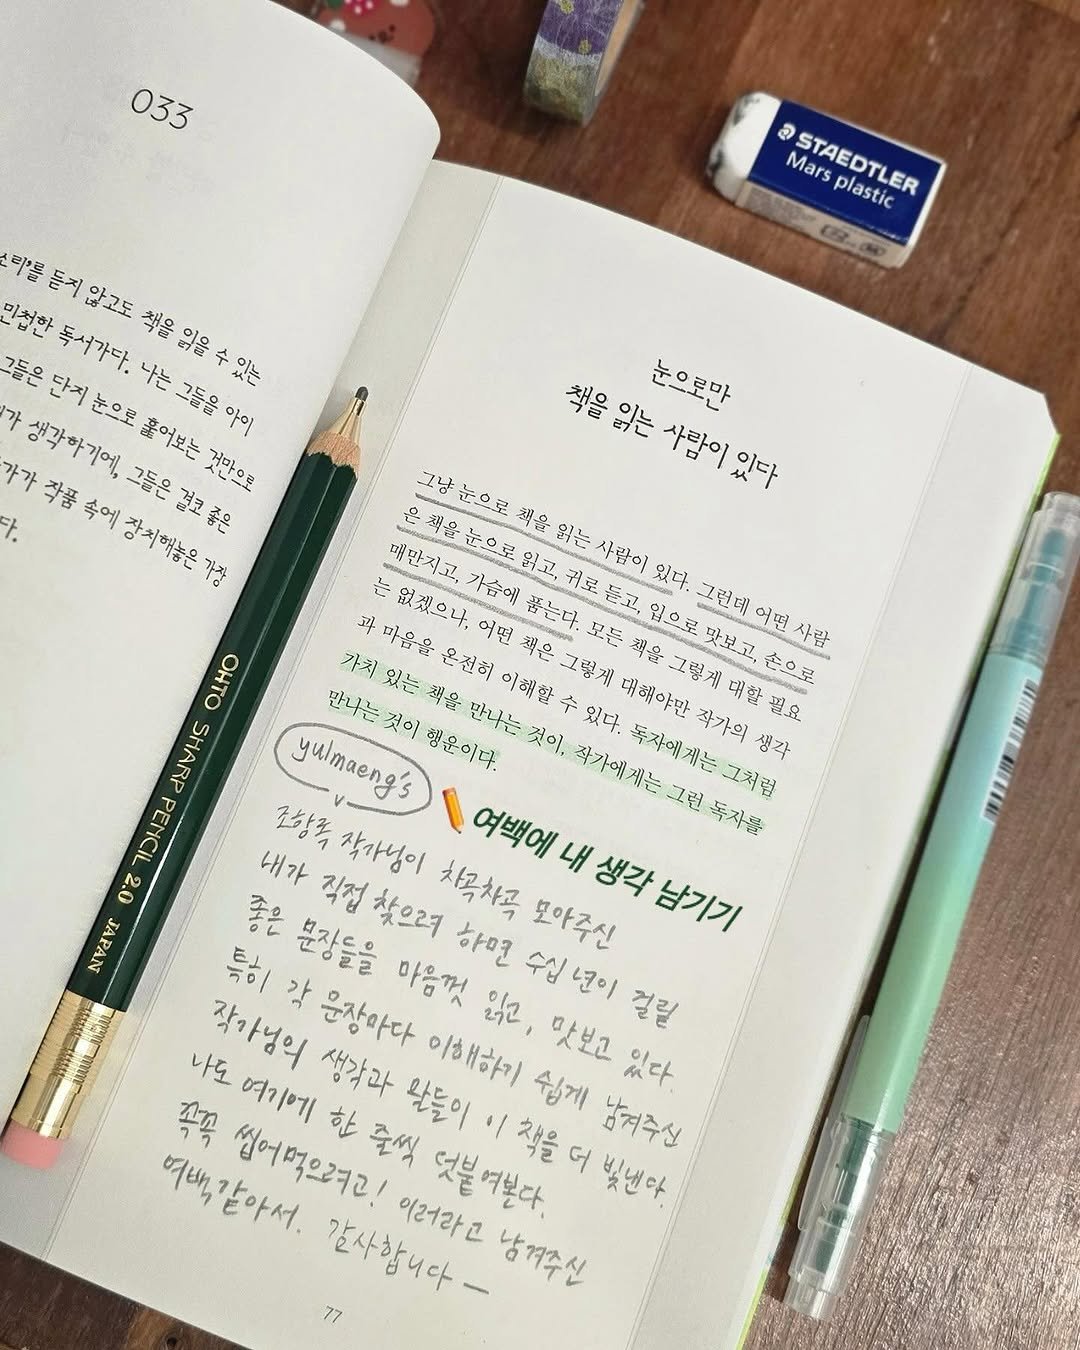 033
소리'를 듣지 않고도 책을 읽을 수 있는
민첩한 독서가다. 나는 그들을 아이
그들은 단지 눈으로 훑어보는 것만으로
가 생각하기에, 그들은 결코 좋은
가가 작품 속에 장치해놓은 가장
다.
STAEDTLER
Mars plastic
눈으로만
책을 읽는 사람이 있다
그냥 눈으로 책을 읽는 사람이 있다. 그런데 어떤 사람
은 책을 눈으로 읽고, 귀로 듣고, 입으로 맛보고, 손으로
매만지고, 가슴에 품는다. 모든 책을 그렇게 대할 필요
는 없겠으나, 어떤 책은 그렇게 대해야만 작가의 생각
과 마음을 온전히 이해할 수 있다. 독자에게는 그처럼
가치 있는 책을 만나는 것이, 작가에게는 그런 독자를
만나는 것이 행운이다.
yulmaeng's
여백에 내 생각 남기기
조항록 작가님이 차곡차곡 모아주신
내가 직접 찾으려 하면 수십 년이 걸릴
좋은 문장들을 마음껏 읽고, 맛보고 있다.
특히 각 문장마다 이해하기 쉽게 남겨주신
작가님의 생각과 말들이 이 책을 더 빛낸다.
나도 여기에 한 줄씩 덧붙여본다.
꼭꼭 씹어먹으려고! 이러라고 남겨주신
여백같아서. 감사합니다—
77
OHTO SHARP PENCIL 2.0 JAPAN